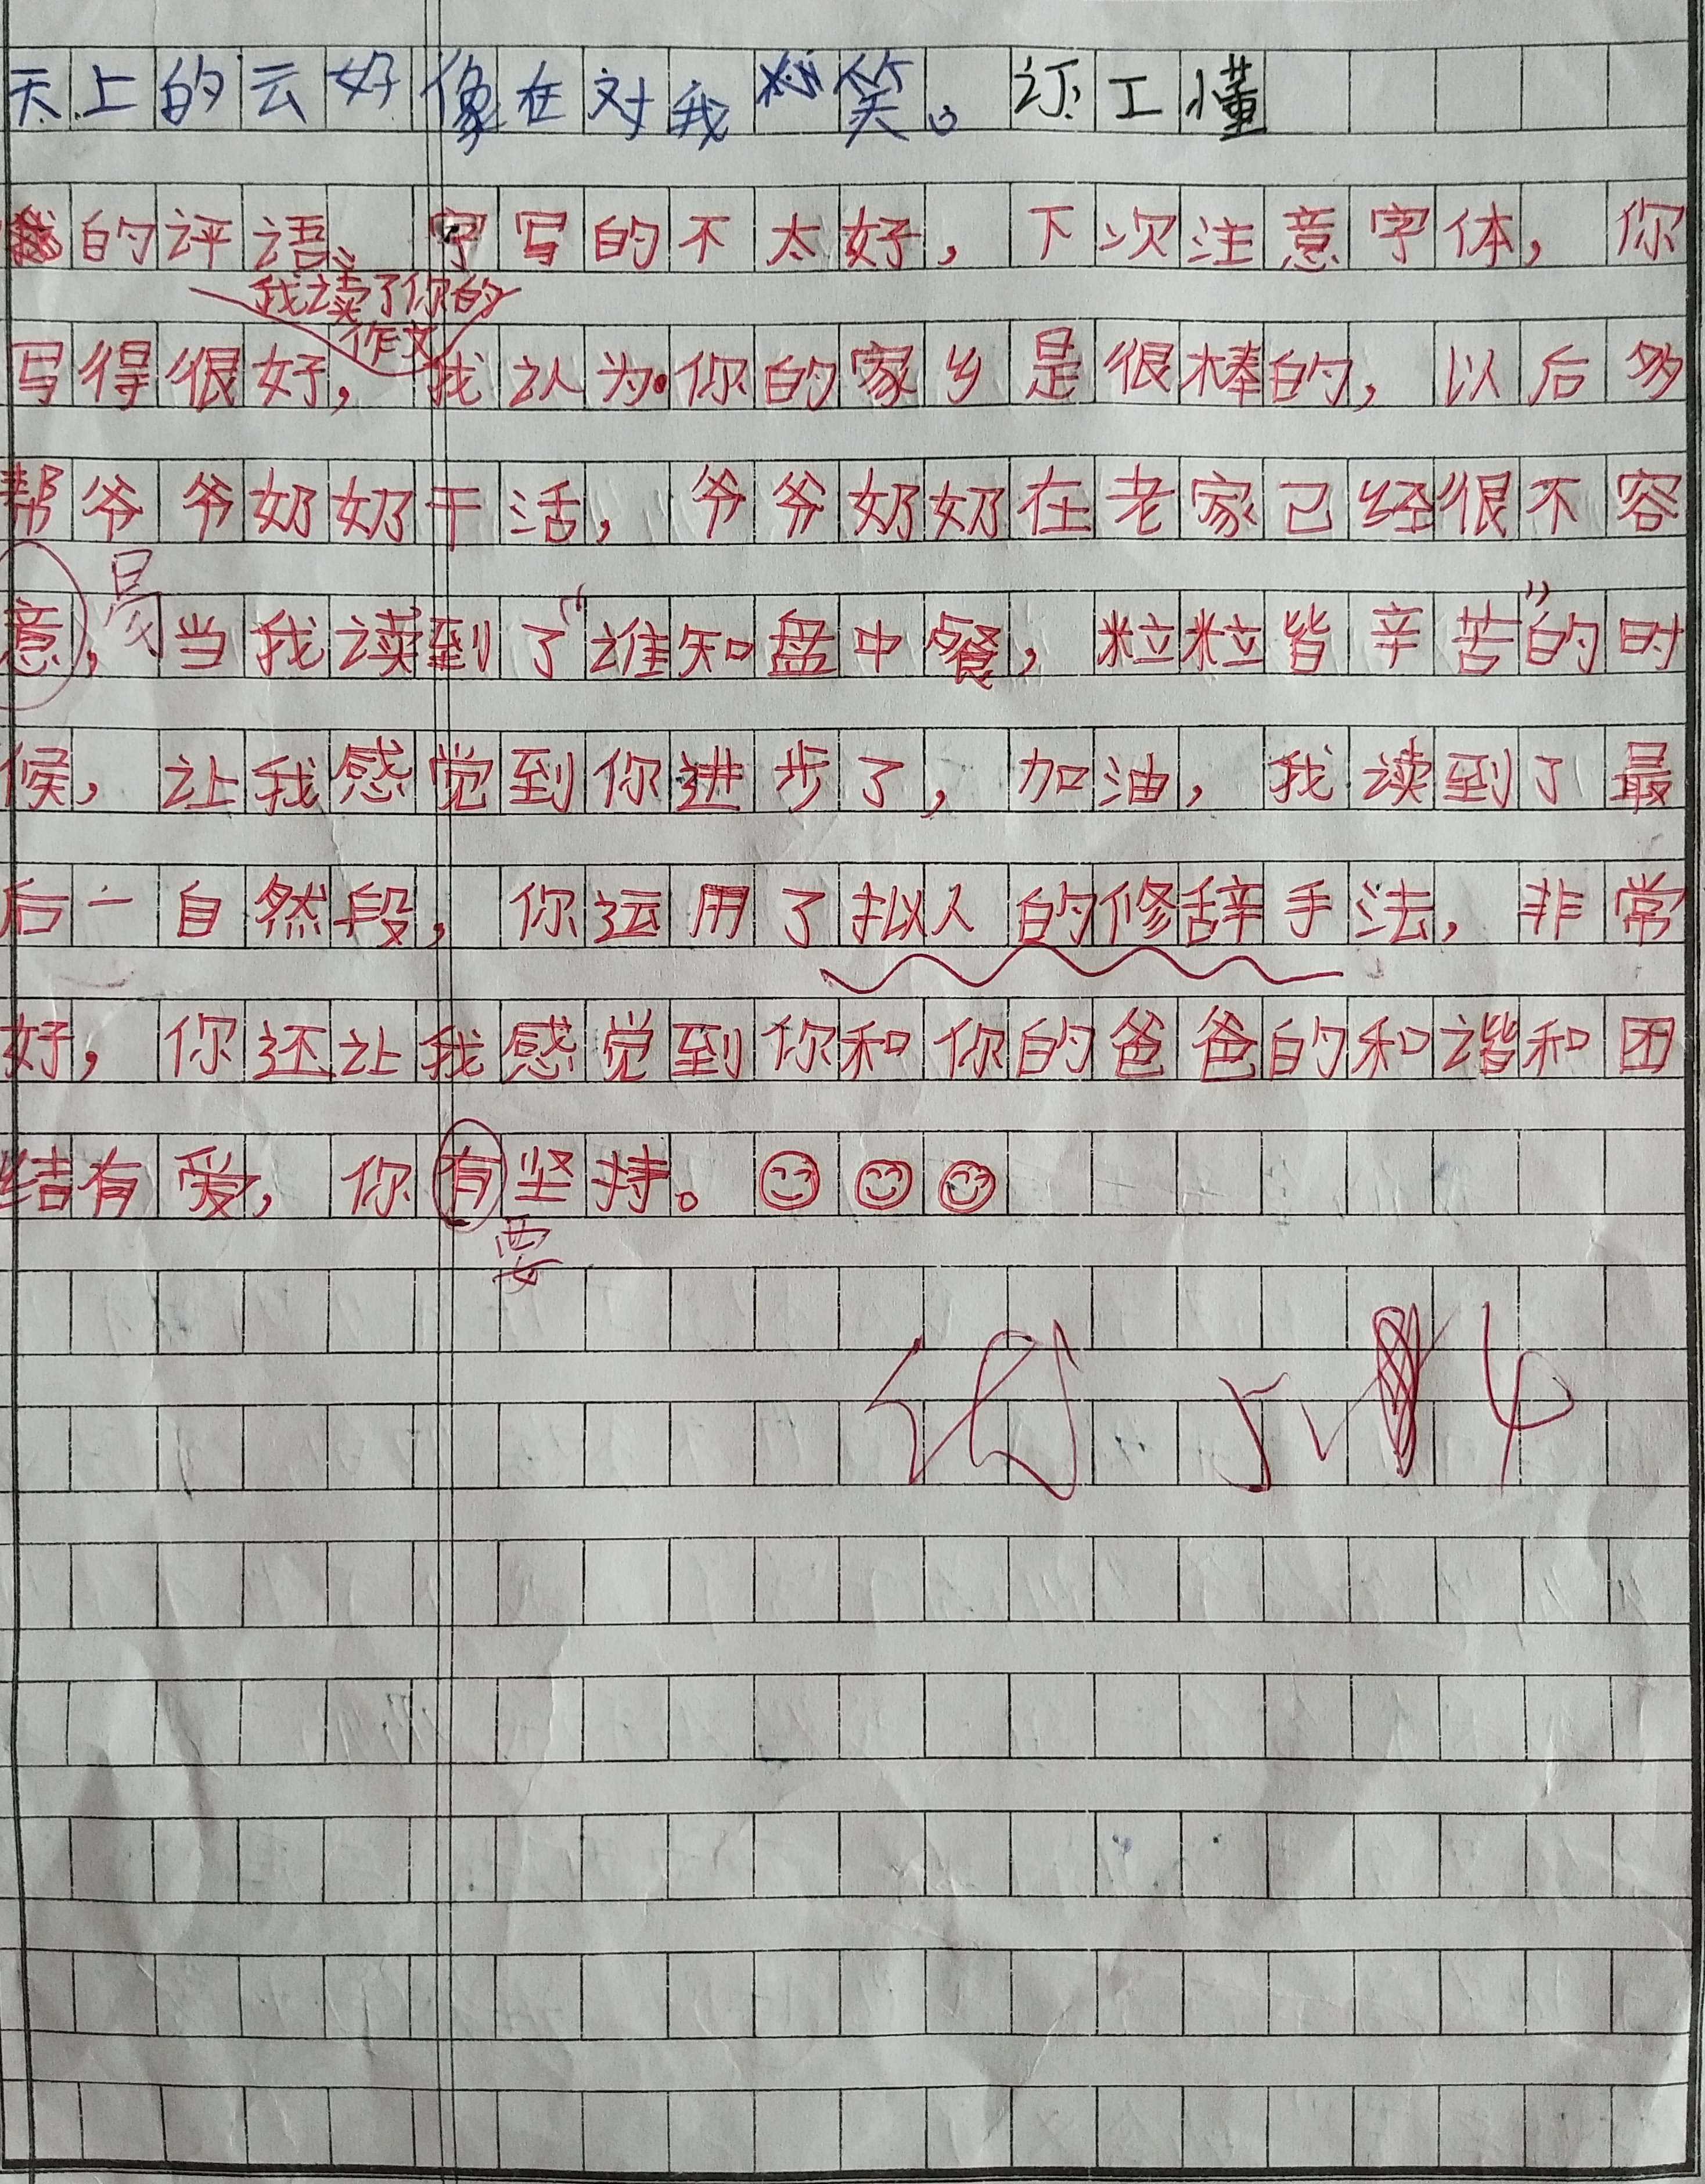 天上的云好像在对我笑。 工懂
我的评语、字写的不太好，下次注意字体，你
我读了你的
作文
写得很好，我认为你的家乡是很棒的，以后多
帮爷爷奶奶干活，爷爷奶奶在老家已经很不容
易
意，当我读到了“谁知盘中餐，粒粒皆辛苦”的时
候，让我感觉到你进步了，加油，我读到了最
后一自然段，你运用了拟人的修辞手法，非常
好，你还让我感觉到你和你的爸爸的和谐和团
结有爱，你有坚持。
要